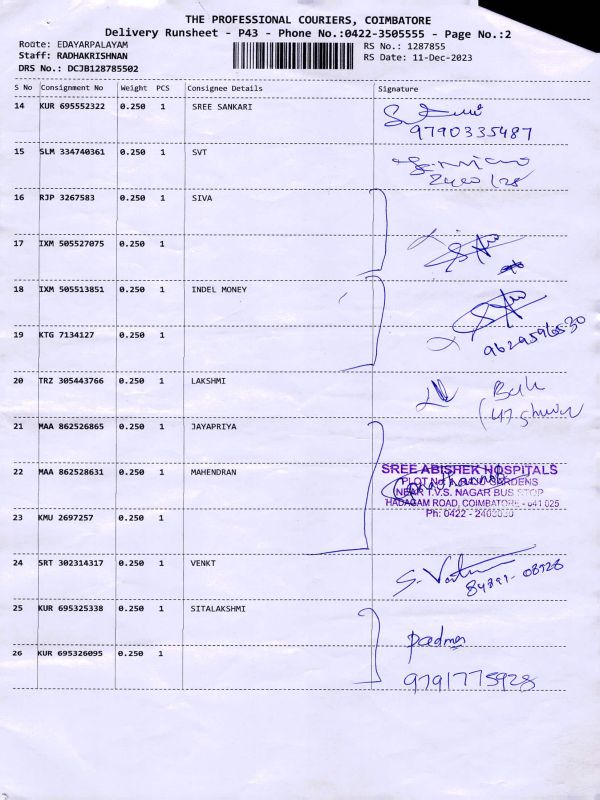 THE PROFESSIONAL COURIERS, COIMBATORE
Delivery Runsheet - P43 - Phone No.:0422-3505555 - Page No.:2
Route: EDAYARPALAYAM RS No.: 1287855
Staff: RADHAKRISHNAN RS Date: 11-Dec-2023
DRS No.: DCJB128785502
S No Consignment No Weight PCS Consignee Details Signature
14 KUR 695552322 0.250 1 SREE SANKARI
9790335487
15 SLM 334740361 0.250 1 SVT
16 RJP 3267583 0.250 1 SIVA
17 IXM 505527075 0.250 1
18 IXM 505513851 0.250 1 INDEL MONEY
19 KTG 7134127 0.250 1
9629596530
20 TRZ 305443766 0.250 1 LAKSHMI
21 MAA 862526865 0.250 1 JAYAPRIYA
22 MAA 862528631 0.250 1 MAHENDRAN
SREE ABISHEK HOSPITALS
PLOT No
GARDENS
NEAR T.V.S. NAGAR BUS STOP
HADAGAM ROAD, COIMBATORE - 641 025
Ph: 0422 -
23 KMU 2697257 0.250 1
24 SRT 302314317 0.250 1 VENKT
84891-08928
25 KUR 695325338 0.250 1 SITALAKSHMI
padma
26 KUR 695326095 0.250 1
9791775928